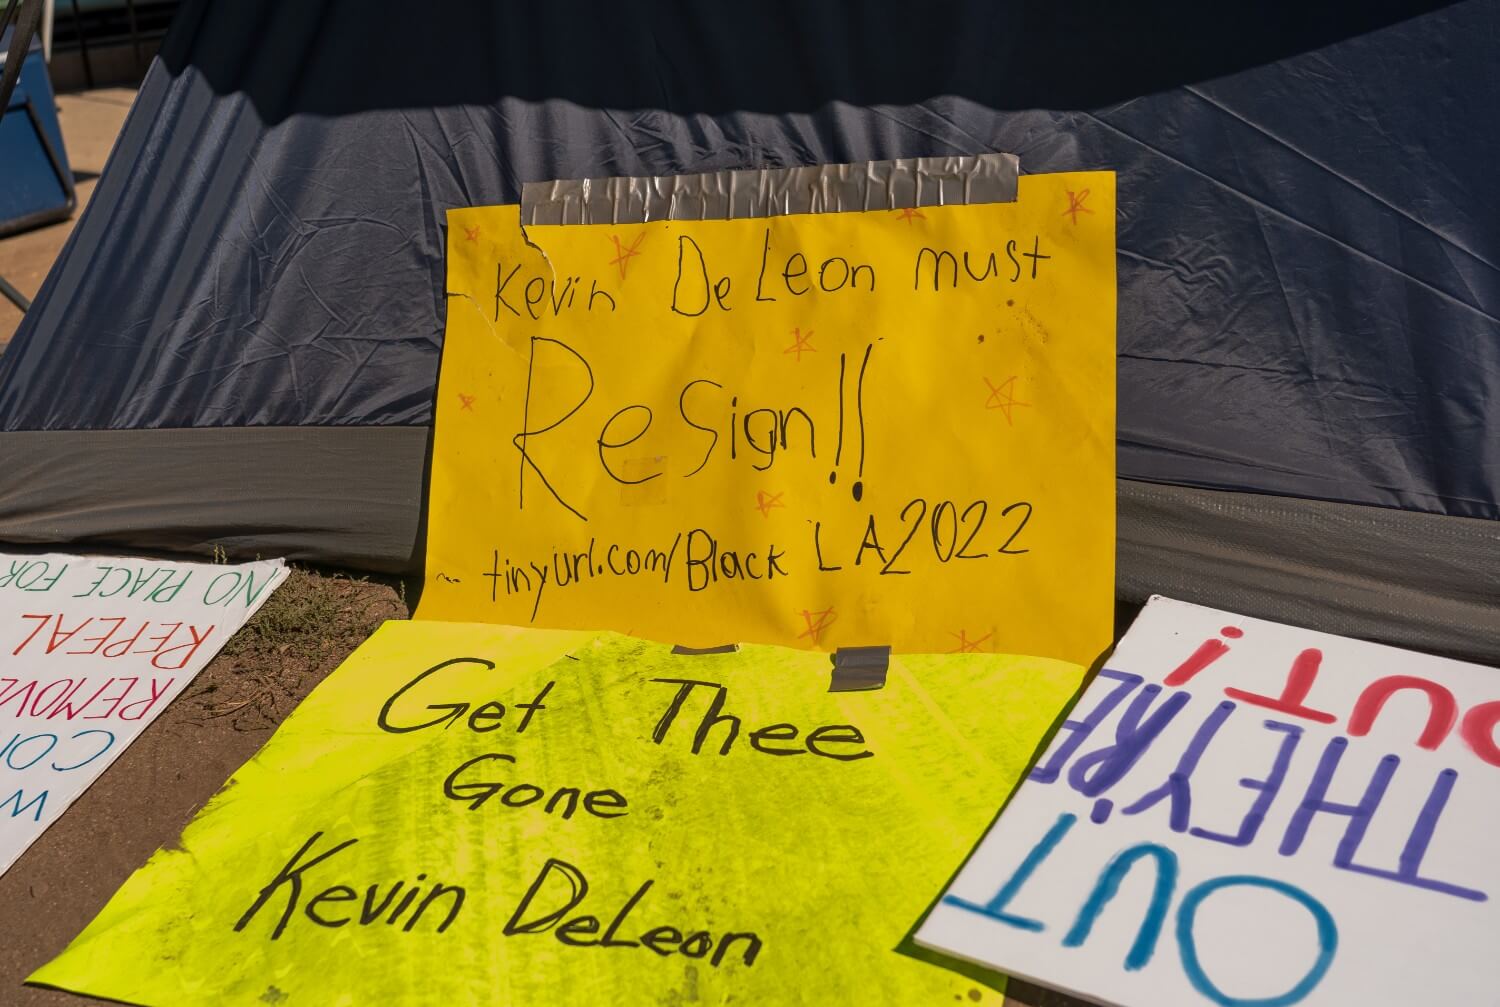 Kevin De Leon must
Resign!!
tinyurl.com/Black LA2022
Get Thee
Gone
Kevin DeLeon
NO PLACE FOR
REPEAL
REMOVE
OUT
THEY'RE
OUT!